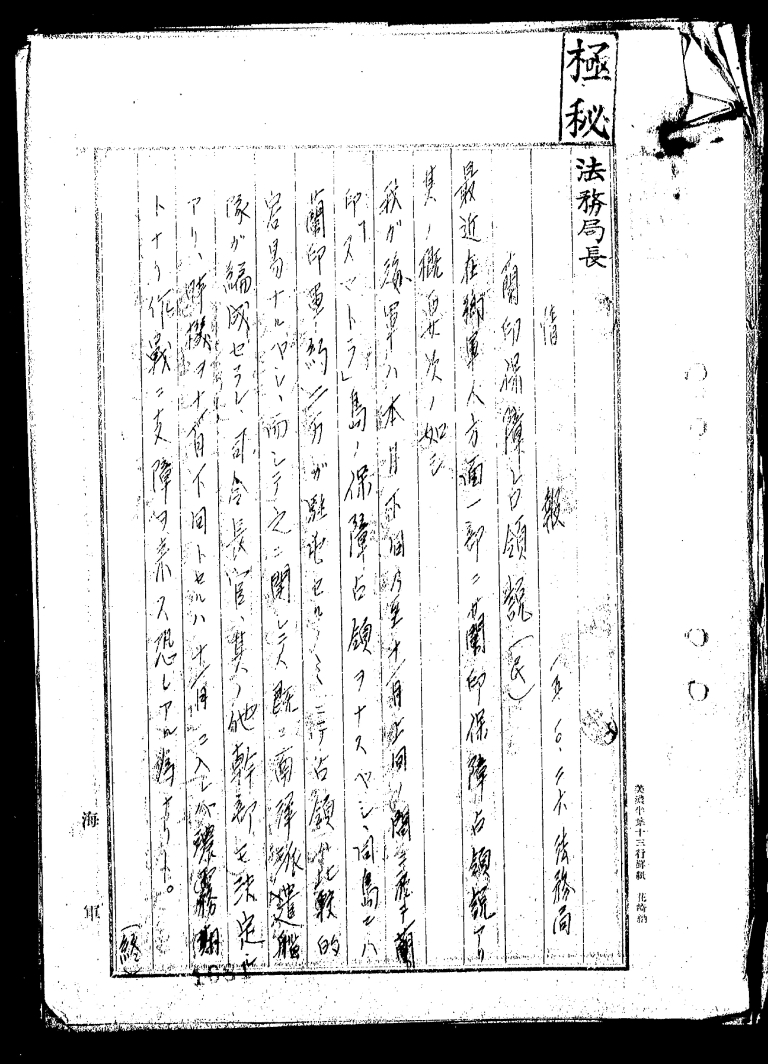 極秘
法務局長
情報
一五、一〇、二六 法務局
蘭印保障占領説(民)
最近在郷軍人方面一部ニ蘭印保障占領説アリ
其ノ概要次ノ如シ
我ガ海軍ハ本月下旬乃至十一月上旬ノ間ニ於テ蘭
印「スマトラ」島ノ保障占領ヲナスベシ、同島ニハ
蘭印軍約二万ガ駐屯セルノミニテ占領ハ比較的
容易ナルベシ、而シテ之ニ関シテハ既ニ南洋派遣艦
隊ガ編成セラレ、司令長官、其ノ他幹部モ決定シ
アリ、時機ヲ十月下旬トセルハ十一月ニ入レバ濃霧期
トナリ作戦ニ支障ヲ来ス恐レアル為ナリト。
(終)
海軍
美濃半葉十三行罫紙